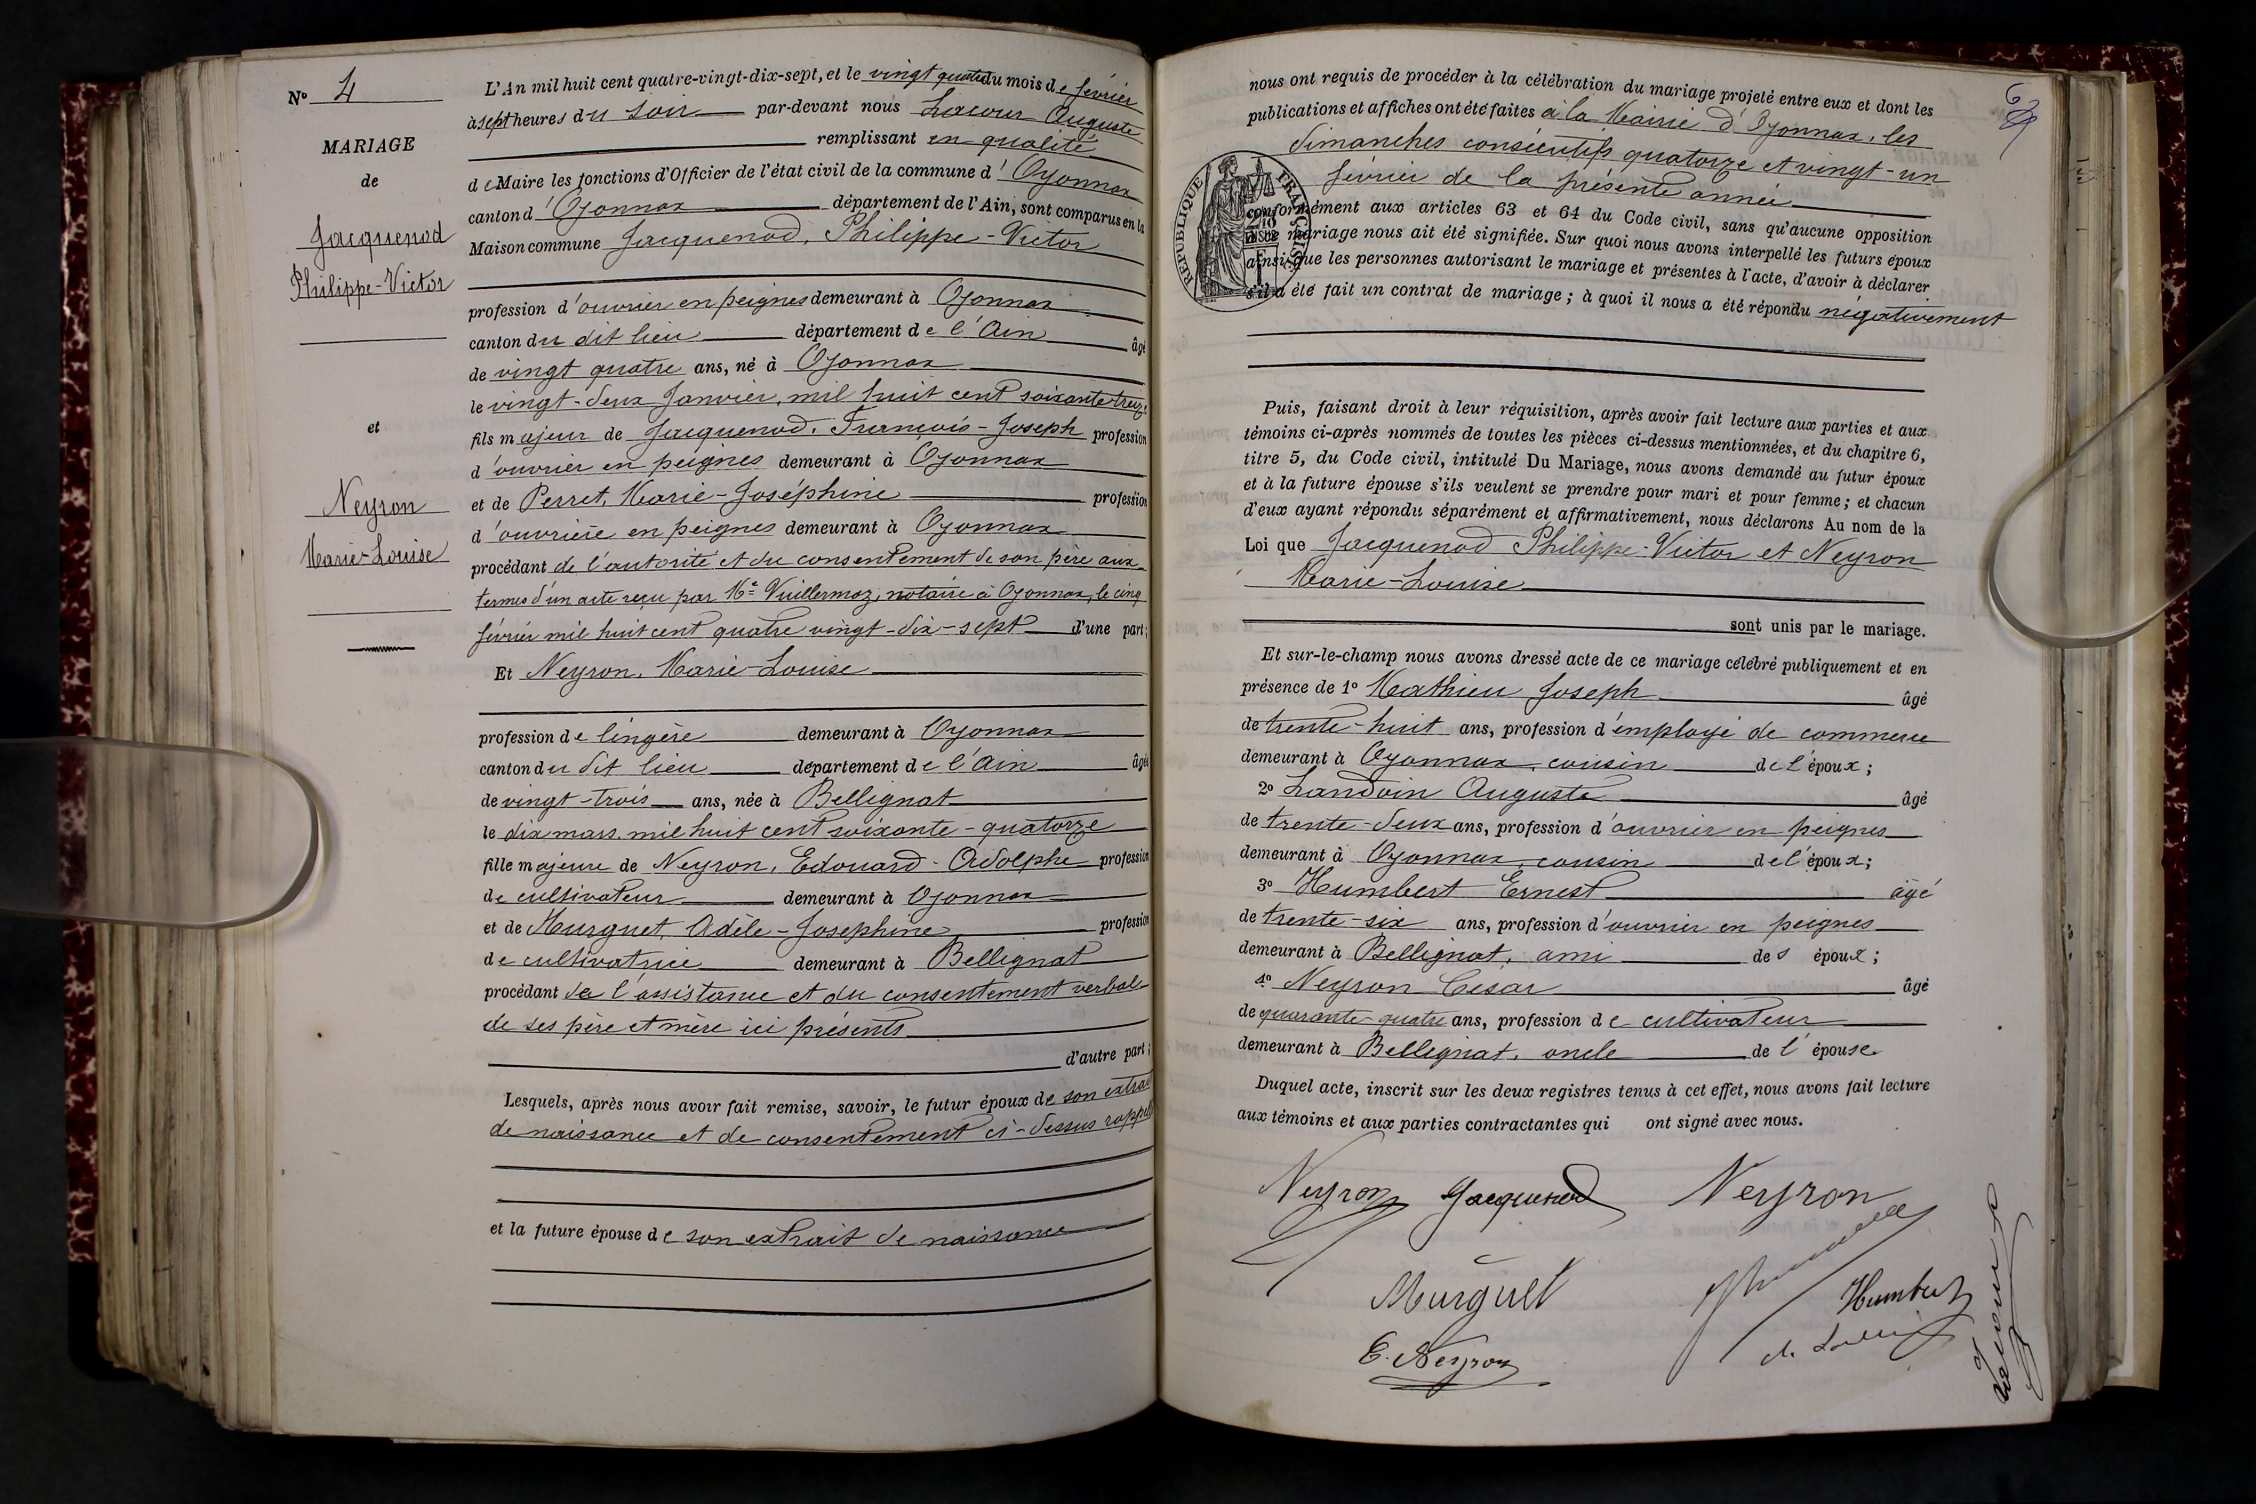 Nº 4
MARIAGE
de
Jacquenod
Philippe-Victor
et
Neyron
Marie-Louise
L'An mil huit cent quatre-vingt-dix-sept, et le vingt quatre du mois de février
à sept heures du soir par-devant nous Lacour Auguste
remplissant en qualité
de Maire les fonctions d'Officier de l'état civil de la commune d'Oyonnax
canton d'Oyonnax département de l'Ain, sont comparus en la
Maison commune Jacquenod, Philippe-Victor
profession d'ouvrier en peignes demeurant à Oyonnax
canton du dit lieu département de l'Ain âgé
de vingt quatre ans, né à Oyonnax
le vingt-deux Janvier, mil huit cent soixante treize
fils majeur de Jacquenod, François-Joseph profession
d'ouvrier en peignes demeurant à Oyonnax
et de Perret, Marie-Joséphine profession
d'ouvrière en peignes demeurant à Oyonnax
procédant de l'autorité et du consentement de son père aux
termes d'un acte reçu par Me Vuillermoz, notaire à Oyonnax, le cinq
février mil huit cent quatre vingt-dix-sept d'une part;
Et Neyron, Marie-Louise
profession de lingère demeurant à Oyonnax
canton du dit lieu département de l'Ain âgée
de vingt-trois ans, née à Bellignat
le dix mars, mil huit cent soixante-quatorze
fille majeure de Neyron, Edouard-Adolphe profession
de cultivateur demeurant à Oyonnax
et de Murguet, Adèle-Josephine profession
de cultivatrice demeurant à Bellignat
procédant de l'assistance et du consentement verbal
de ses père et mère ici présents
d'autre part;
Lesquels, après nous avoir fait remise, savoir, le futur époux de son extrait
de naissance et de consentement ci-dessus rappelé
et la future épouse de son extrait de naissance
nous ont requis de procéder à la célébration du mariage projeté entre eux et dont les
publications et affiches ont été faites à la Mairie d'Oyonnax, les
dimanches consécutifs quatorze et vingt-un
février de la présente année
RÉPUBLIQUE FRANÇAISE
conformément aux articles 63 et 64 du Code civil, sans qu'aucune opposition
à ce mariage nous ait été signifiée. Sur quoi nous avons interpellé les futurs époux
ainsi que les personnes autorisant le mariage et présentes à l'acte, d'avoir à déclarer
s'il a été fait un contrat de mariage; à quoi il nous a été répondu négativement
Puis, faisant droit à leur réquisition, après avoir fait lecture aux parties et aux
témoins ci-après nommés de toutes les pièces ci-dessus mentionnées, et du chapitre 6,
titre 5, du Code civil, intitulé Du Mariage, nous avons demandé au futur époux
et à la future épouse s'ils veulent se prendre pour mari et pour femme; et chacun
d'eux ayant répondu séparément et affirmativement, nous déclarons Au nom de la
Loi que Jacquenod Philippe-Victor et Neyron
Marie-Louise
sont unis par le mariage.
Et sur-le-champ nous avons dressé acte de ce mariage célébré publiquement et en
présence de 1º Mathieu Joseph âgé
de trente-huit ans, profession d'employé de commerce
demeurant à Oyonnax, cousin de l'époux;
2º Landoin Auguste âgé
de trente-deux ans, profession d'ouvrier en peignes
demeurant à Oyonnax, cousin de l'époux;
3º Humbert Ernest âgé
de trente-six ans, profession d'ouvrier en peignes
demeurant à Bellignat, ami des époux;
4º Neyron César âgé
de quarante-quatre ans, profession de cultivateur
demeurant à Bellignat, oncle de l'épouse
Duquel acte, inscrit sur les deux registres tenus à cet effet, nous avons fait lecture
aux témoins et aux parties contractantes qui ont signé avec nous.
Neyron Jacquenod Neyron
Murguet
Humbert
E. Neyron